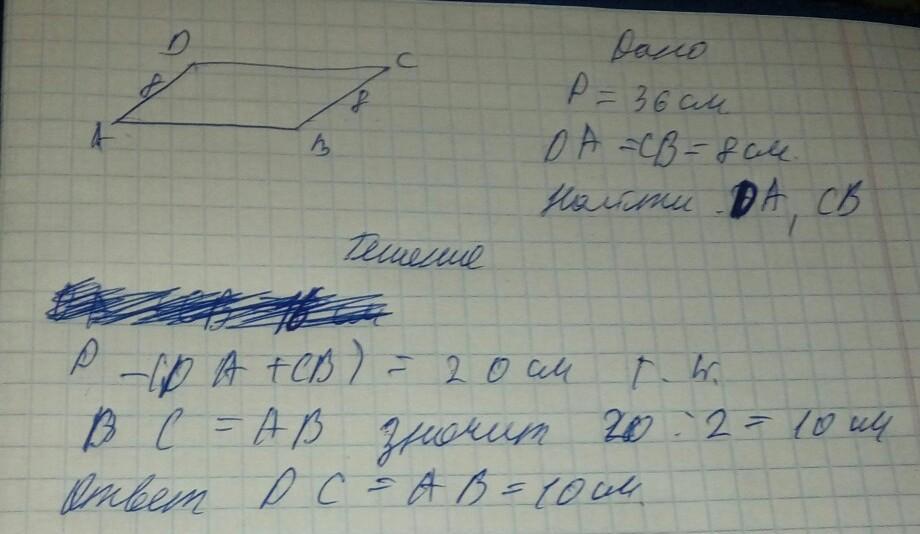 D
C
8
8
A
B
Дано
P = 36 см
DA = CB = 8 см.
Найти DA, CB
Решение
P - (DA + CB) = 20 см т. к.
BC = AB значит 20 : 2 = 10 см
Ответ DC = AB = 10 см.